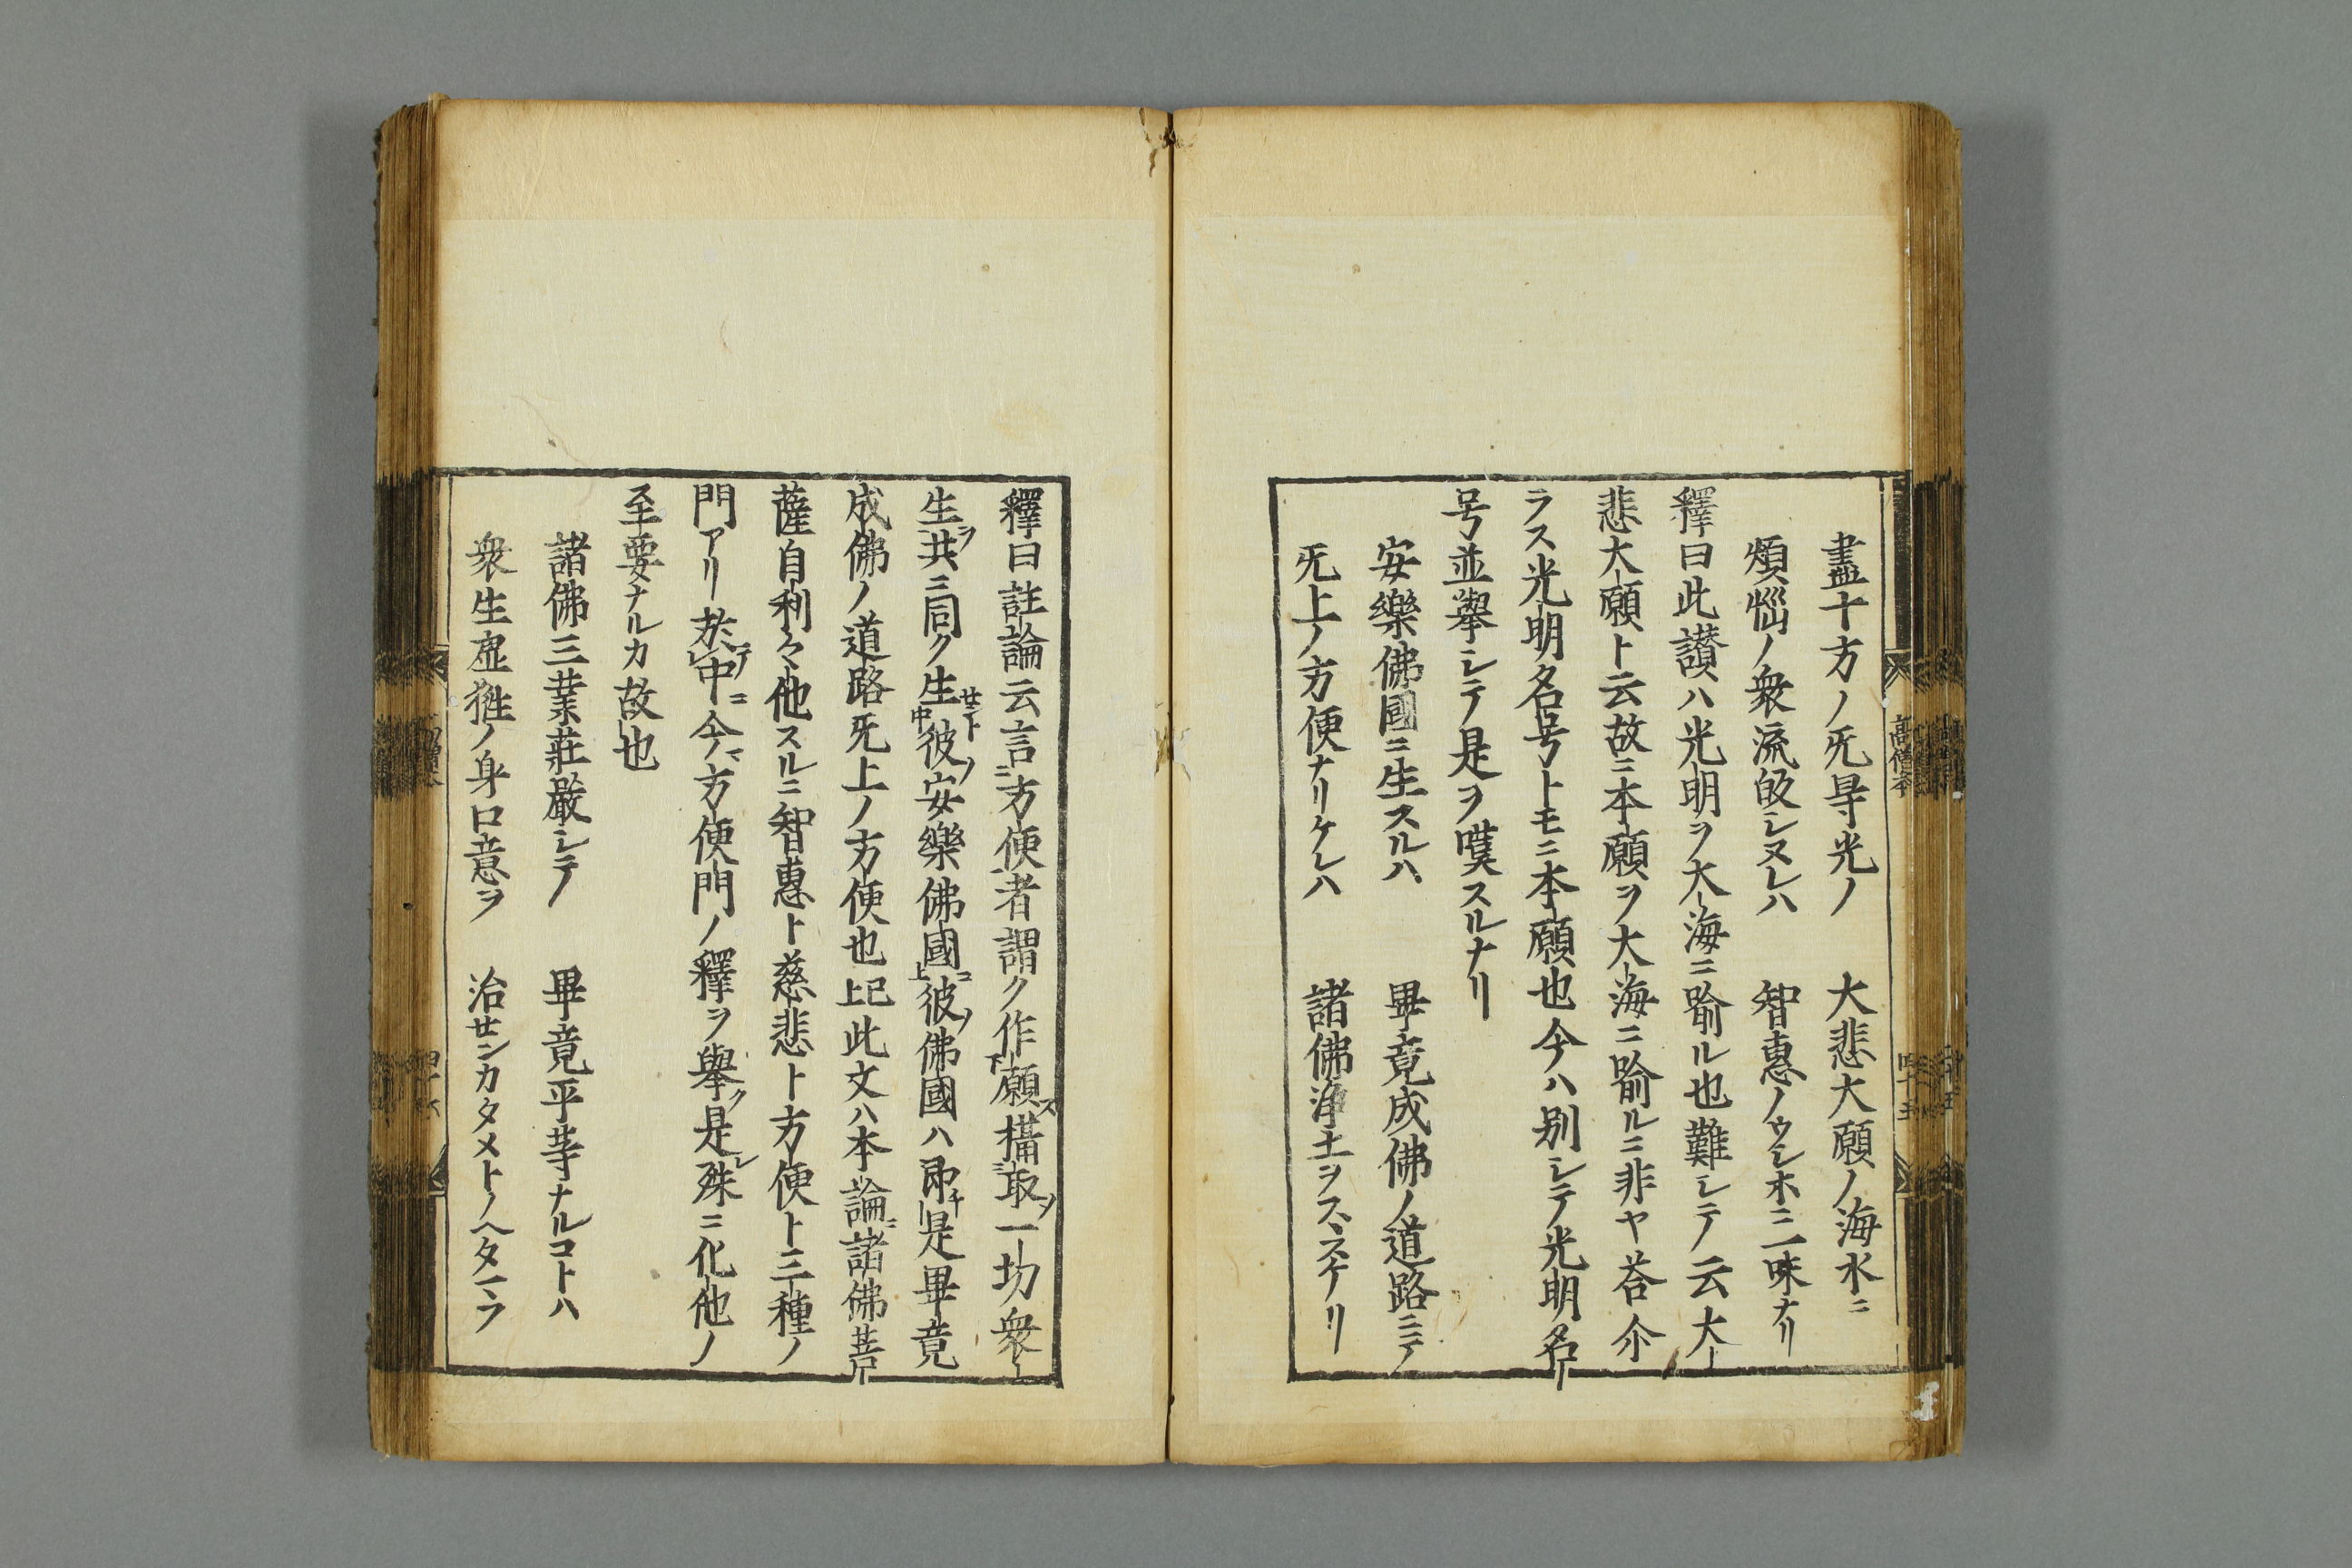 盡十方ノ旡㝵光ノ　大悲大願ノ海水ニ
煩惱ノ衆流皈シヌレハ　智惠ノウシホニ一味ナリ
釋曰此讃ハ光明ヲ大海ニ喩ル也難シテ云大
悲大願ト云故ニ本願ヲ大海ニ喩ルニ非ヤ荅尒
ラス光明名号トモニ本願也今ハ別シテ光明名
号並擧シテ是ヲ嘆スルナリ
安樂佛國ニ生スルハ　畢竟成佛ノ道路ニテ
旡上ノ方便ナリケレハ　諸佛浄土ヲスヽメケリ
髙僧本
四十五
釋曰註論云言方便者謂ク作願スて攝取ノ一切衆
生ヲ共ニ同ク生セント彼ノ安樂佛國ニ彼ノ佛國ハ即チ是畢竟
成佛ノ道路旡上ノ方便也已上此文ハ本論ニ諸佛菩
薩自利々他スルニ智惠ト慈悲ト方便ト三種ノ
門アリ於テ中ニ今マ方便門ノ釋ヲ擧ク是レ殊ニ化他ノ
至要ナルカ故也
諸佛三業莊嚴シテ　畢竟平等ナルコトハ
衆生虚誑ノ身口意ヲ　治センカタメトノヘタマフ